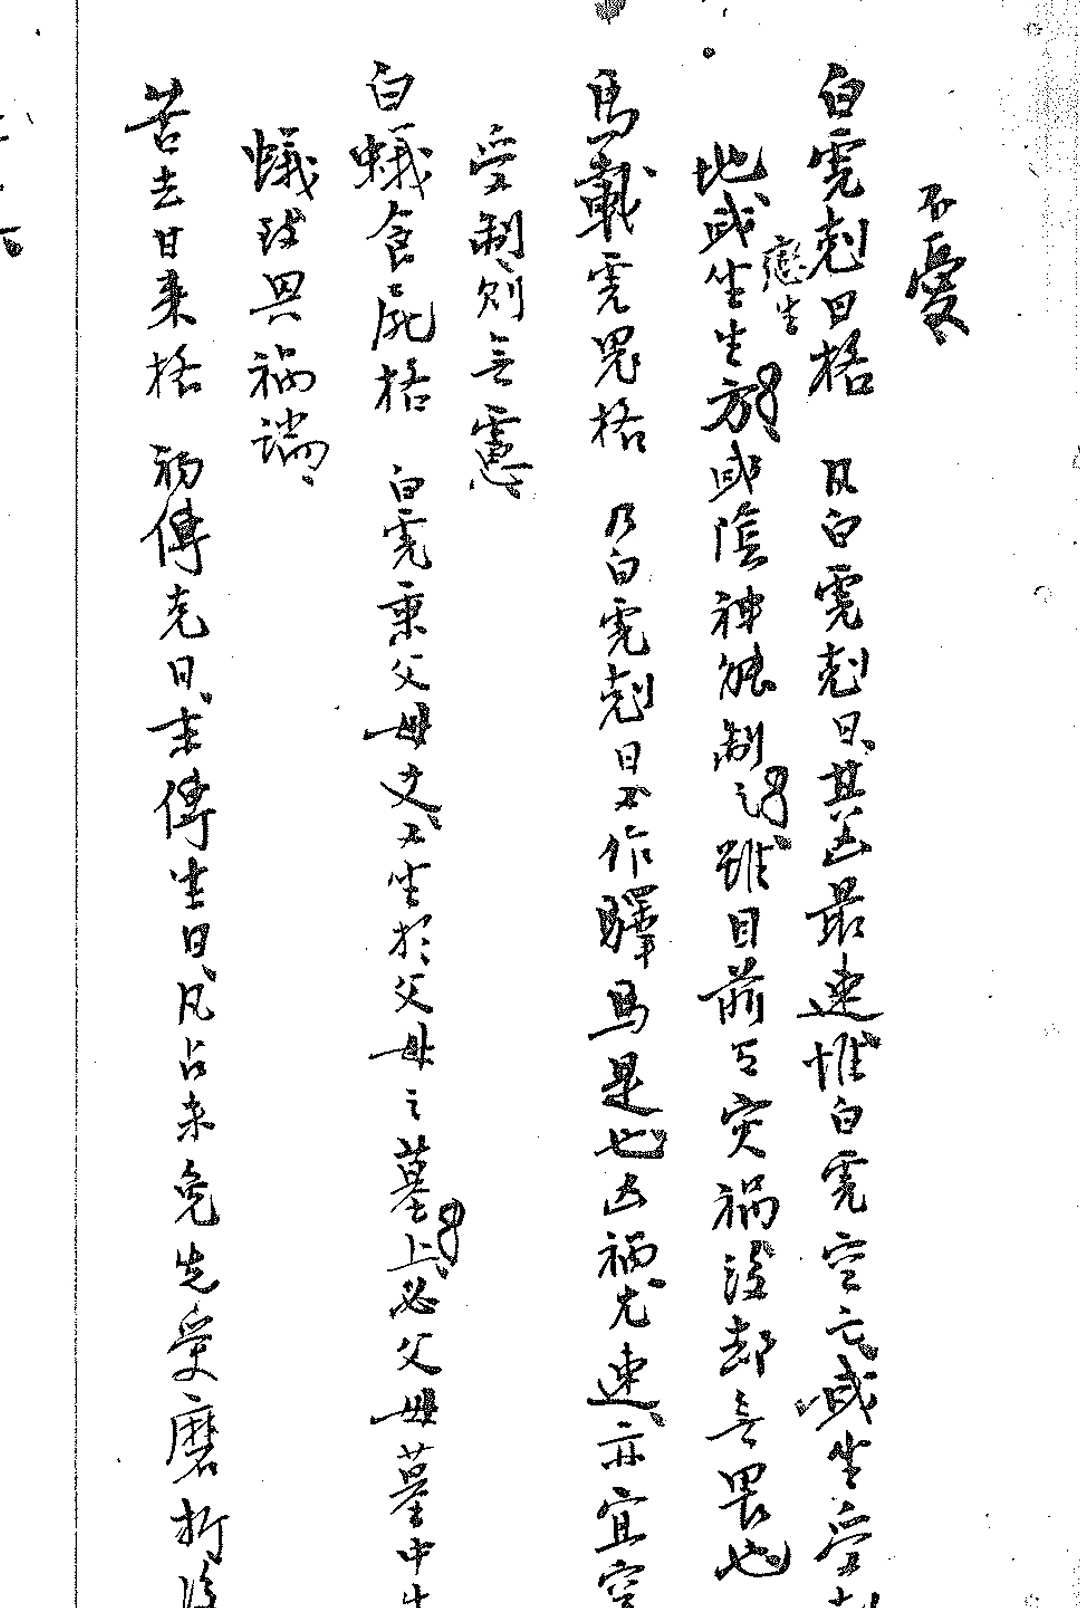 不憂
白虎尅日格 凡白虎尅日其凶最速惟白虎空亡或坐受
地或坐生方或陰神能制之雖目前有灾禍後却无畏也
恋生
馬載虎鬼格 乃白虎尅日又作驛馬是也凶禍尤速亦宜空
受制則无慮
白蟻食屍格 白虎乘父母爻又坐於父母之墓上必父母墓中生
蟻致興禍端
苦去甘來格 初傳克日末傳生日凡占未免先受磨折後